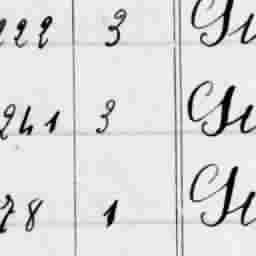 222 3 Gu
241 3 Gu
78 1 Gu